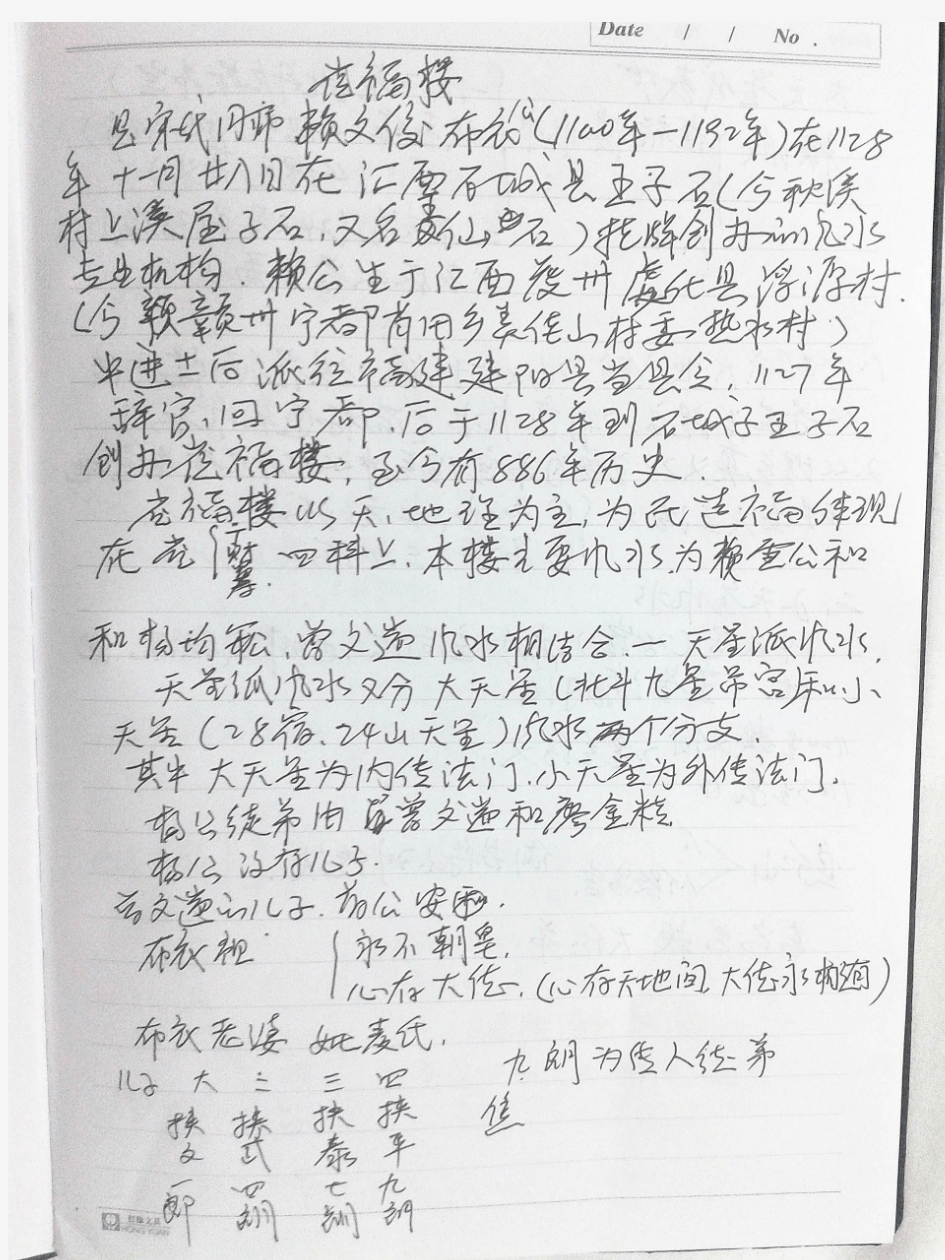 Date / / No .
福楼
是宋代门师赖文俊布衣公(1100年—1192年)在1128
年十一月廿八日在江西石城县王子石(今秋溪
村上溪屋子石,又名麦仙岩石)挂牌创办的风水
专业机构.赖公生于江西 州虔化县浮源村.
(今 赣州宁都首田乡美佳山村委热水村.)
中进士后派往福建建阳县当县令,1127年
辞官,回宁都,后于1128年到石城子王子石
创办 福楼,至今有886年历史.
福楼以天、地理为主,为民造福体现
在 四科上.本楼主要风水为赖 公和
和杨均松、曾文遄风水相结合.一天星派风水.
天星派风水又分大天星(北斗九星吊宫)和小
天星(28宿、24山天星)风水两个分支.
其中大天星为内传法门.小天星为外传法门.
杨公徒弟由 曾文遄和廖金精
杨公没有儿子.
曾文遄的儿子.
布衣祖 永不朝皇,
心存大德.(心存天地间 大德永相随)
布衣老婆 姓麦氏.
儿子 大 二 三 四 九朗为传人徒弟
扶 扶 扶 扶
文 武 泰 平
一 四 七 九
郎 朗 朗 朗
HONG YUAN